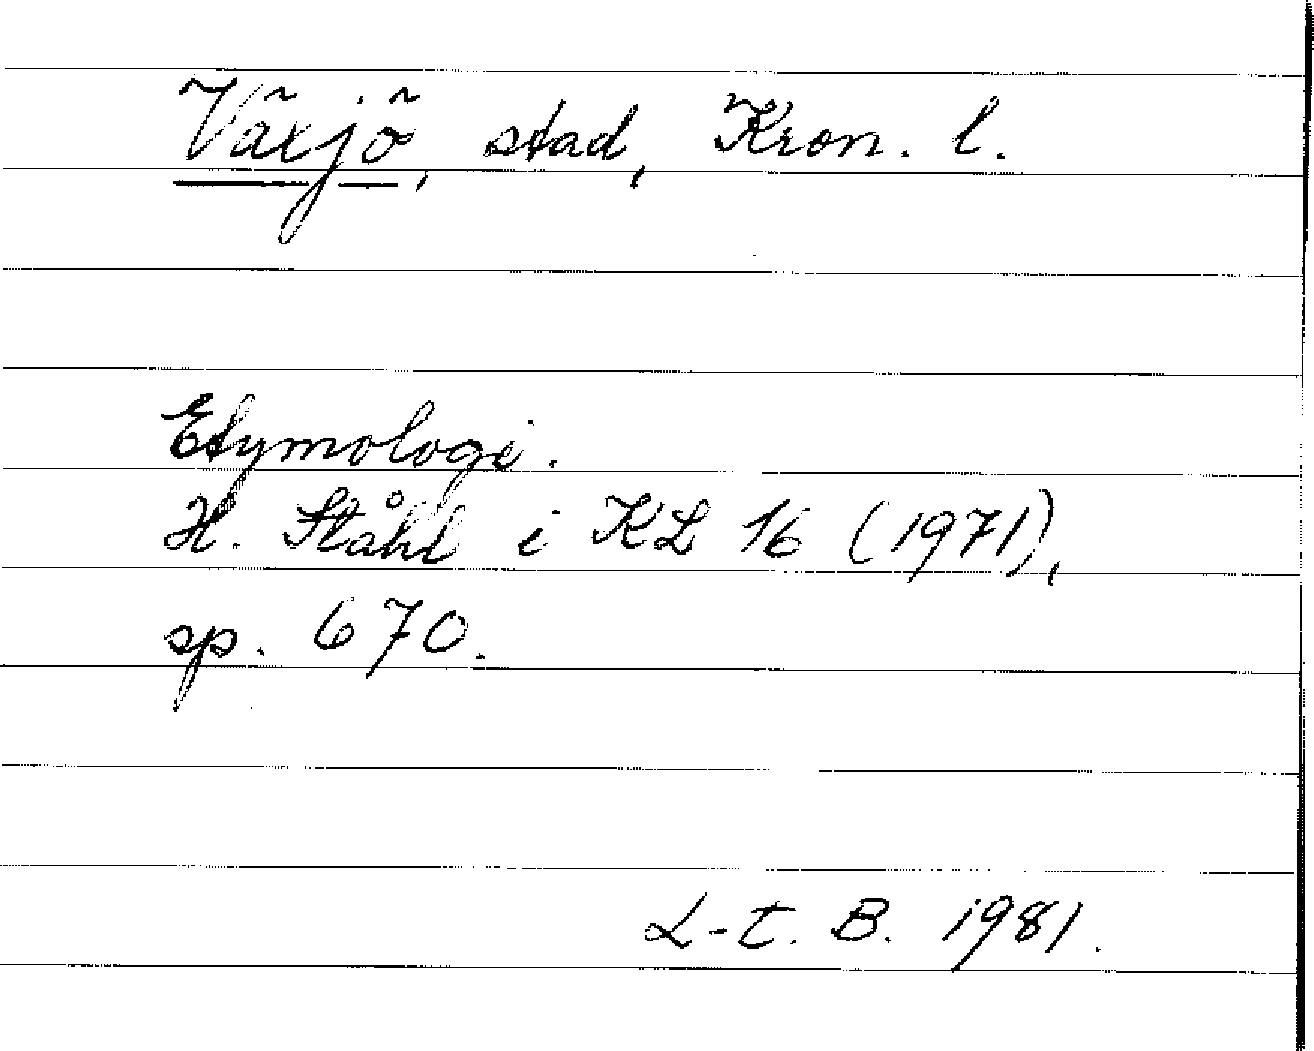 Växjö, stad, Kron. l.
Etymologi.
H. Ståhl i KL 16 (1971),
sp. 670.
L-t. B. 1981.